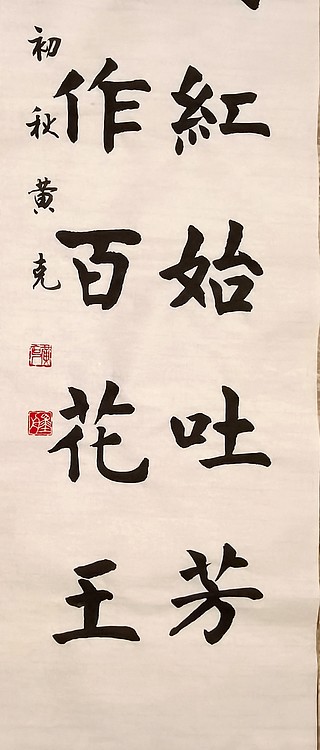 紅始吐芳
作百花王
初秋黄克